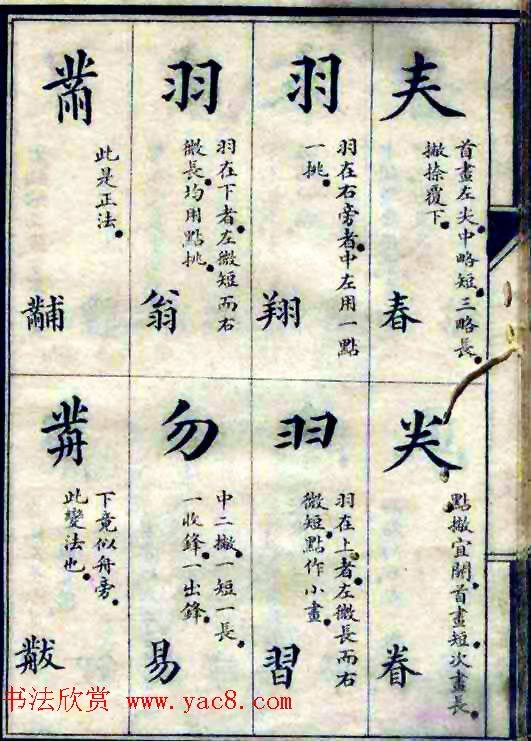 𡗗
首畫左尖中略短三略長
撇捺覆下
春
羽
羽在右旁者中左用一點
一挑
翔
羽
羽在下者左微短而右
微長均用點挑
翁
黹
此是正法
黼
龹
點撇宜開首畫短次畫長
眷
羽
羽在上者左微長而右
微短點作小畫
習
勿
中二撇一短一長
一收鋒一出鋒
易
黹
下竟似舟旁
此變法也
黻
书法欣赏 www.yac8.com